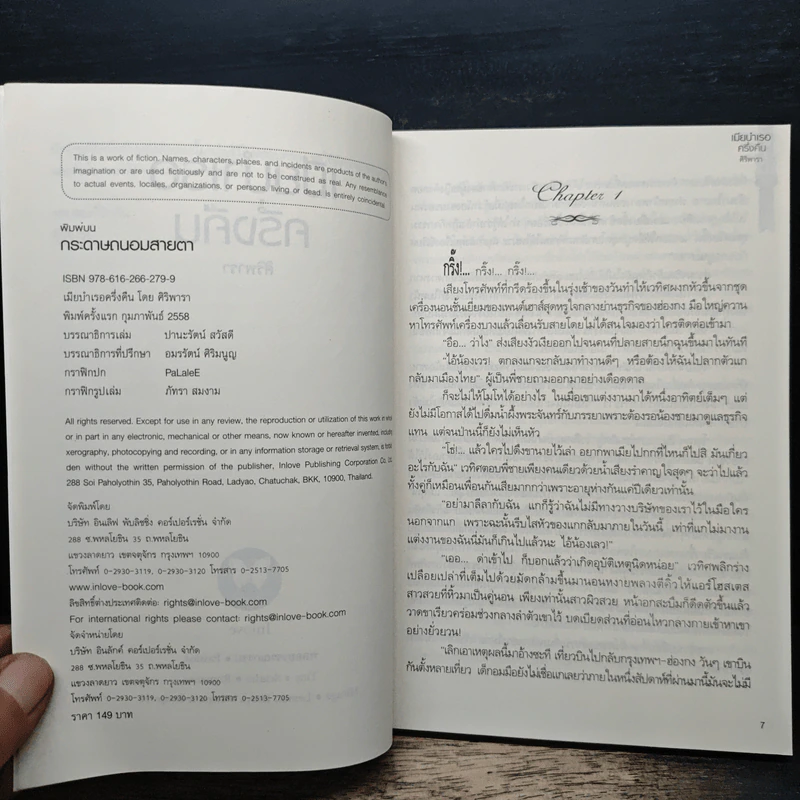 This is a work of fiction. Names, characters, places, and incidents are products of the author's
imagination or are used fictitiously and are not to be construed as real. Any resemblance
to actual events, locales, organizations, or persons, living or dead, is entirely coincidental.
พิมพ์บน
กระดาษถนอมสายตา
ISBN 978-616-266-279-9
เมียบำเรอครึ่งคืน โดย ศิริพารา
พิมพ์ครั้งแรก กุมภาพันธ์ 2558
บรรณาธิการเล่ม ปานะรัตน์ สวัสดี
บรรณาธิการที่ปรึกษา อมรรัตน์ ศิริมนูญ
กราฟิกปก PaLaleE
กราฟิกรูปเล่ม ภัทรา สมงาม
All rights reserved. Except for use in any review, the reproduction or utilization of this work in whole
or in part in any electronic, mechanical or other means, now known or hereafter invented, including
xerography, photocopying and recording, or in any information storage or retrieval system, is
den without the written permission of the publisher, Inlove Publishing Corporation Co.
288 Soi Paholyothin 35, Paholyothin Road, Ladyao, Chatuchak, BKK, 10900, Thailand.
จัดพิมพ์โดย
บริษัท อินเลิฟ พับลิชชิ่ง คอร์เปอร์เรชั่น จำกัด
288 ซ.พหลโยธิน 35 ถ.พหลโยธิน
แขวงลาดยาว เขตจตุจักร กรุงเทพฯ 10900
โทรศัพท์ 0-2930-3119, 0-2930-3120 โทรสาร 0-2513-7705
www.inlove-book.com
ลิขสิทธิ์ต่างประเทศติดต่อ: rights@inlove-book.com
For international rights please contact: rights@inlove-book.com
จัดจำหน่ายโดย
บริษัท อินลักค์ คอร์เปอร์เรชั่น จำกัด
288 ซ.พหลโยธิน 35 ถ.พหลโยธิน
แขวงลาดยาว เขตจตุจักร กรุงเทพฯ 10900
โทรศัพท์ 0-2930-3119, 0-2930-3120 โทรสาร 0-2513-7705
ราคา 149 บาท
เมียบำเรอ
ครึ่งคืน
ศิริพารา
Chapter 1
กริ๊ง!... กริ๊ง!... กริ๊ง!...
เสียงโทรศัพท์ที่กรีดร้องขึ้นในรุ่งเช้าของวันทำให้เวทิศผงกหัวขึ้นจากชุด
เครื่องนอนชั้นเยี่ยมของเพนต์เฮาส์สุดหรูใจกลางย่านธุรกิจของฮ่องกง มือใหญ่ควาน
หาโทรศัพท์เครื่องบางแล้วเลื่อนรับสายโดยไม่ได้สนใจมองว่าใครติดต่อเข้ามา
“อือ... ว่าไง” ส่งเสียงงัวเงียออกไปจนคนที่ปลายสายนึกฉุนขึ้นมาในทันที
“ไอ้น้องเวร! ตกลงแกจะกลับมาทำงานดีๆ หรือต้องให้ฉันไปลากตัวแก
กลับมาเมืองไทย” ผู้เป็นพี่ชายถามออกมาอย่างเดือดดาล
ก็จะไม่ให้โมโหได้อย่างไร ในเมื่อเขาแต่งงานมาได้หนึ่งอาทิตย์เต็มๆ แต่
ยังไม่มีโอกาสได้ไปดื่มน้ำผึ้งพระจันทร์กับภรรยาเพราะต้องรอน้องชายมาดูแลธุรกิจ
แทน แต่จนป่านนี้ก็ยังไม่เห็นหัว
“โซ่!... แล้วใครไปดึงขานายไว้เล่า อยากพาเมียไปกกที่ไหนก็ไปสิ มันเกี่ยว
อะไรกับฉัน” เวทิศตอบพี่ชายเพียงคนเดียวด้วยน้ำเสียงรำคาญใจสุดๆ จะว่าไปแล้ว
ทั้งคู่ก็เหมือนเพื่อนกันเสียมากกว่าเพราะอายุห่างกันแค่ปีเดียวเท่านั้น
“อย่ามาลีลากับฉัน แกก็รู้ว่าฉันไม่มีทางวางบริษัทของเราไว้ในมือใคร
นอกจากแก เพราะฉะนั้นรีบไสหัวของแกกลับมาภายในวันนี้ เท่าที่แกไม่มางาน
แต่งงานของฉันนี่มันก็เกินไปแล้วนะ ไอ้น้องเลว!”
“เออ... ด่าเข้าไป ก็บอกแล้วว่าเกิดอุบัติเหตุนิดหน่อย” เวทิศพลิกร่าง
เปลือยเปล่าที่เต็มไปด้วยมัดกล้ามขึ้นมานอนหงายพลางตีคิ้วให้แอร์โฮสเตส
สาวสวยที่หิ้วมาเป็นคู่นอน เพียงเท่านั้นสาวผิวสวย หน้าอกสะบึมก็ดีดตัวขึ้นแล้ว
วาดขาเรียวคร่อมช่วงกลางลำตัวเขาไว้ บดเบียดส่วนที่อ่อนไหวกลางกายเข้าหาเขา
อย่างยั่วยวน!
“เลิกเอาเหตุผลนี้มาอ้างซะที เที่ยวบินไปกลับกรุงเทพฯ-ฮ่องกง วันๆ เขาบิน
กันตั้งหลายเที่ยว เด็กอมมือยังไม่เชื่อแกเลยว่าภายในหนึ่งสัปดาห์ที่ผ่านมานี้มันจะไม่มี
7